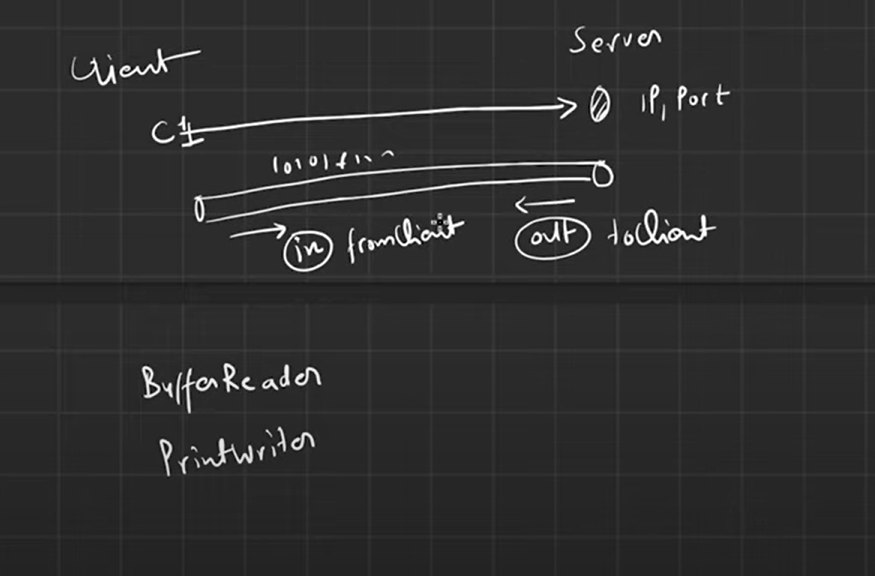 Client
Server
C1
IP, Port
in fromClient
out toClient
BufferReader
PrintWriter